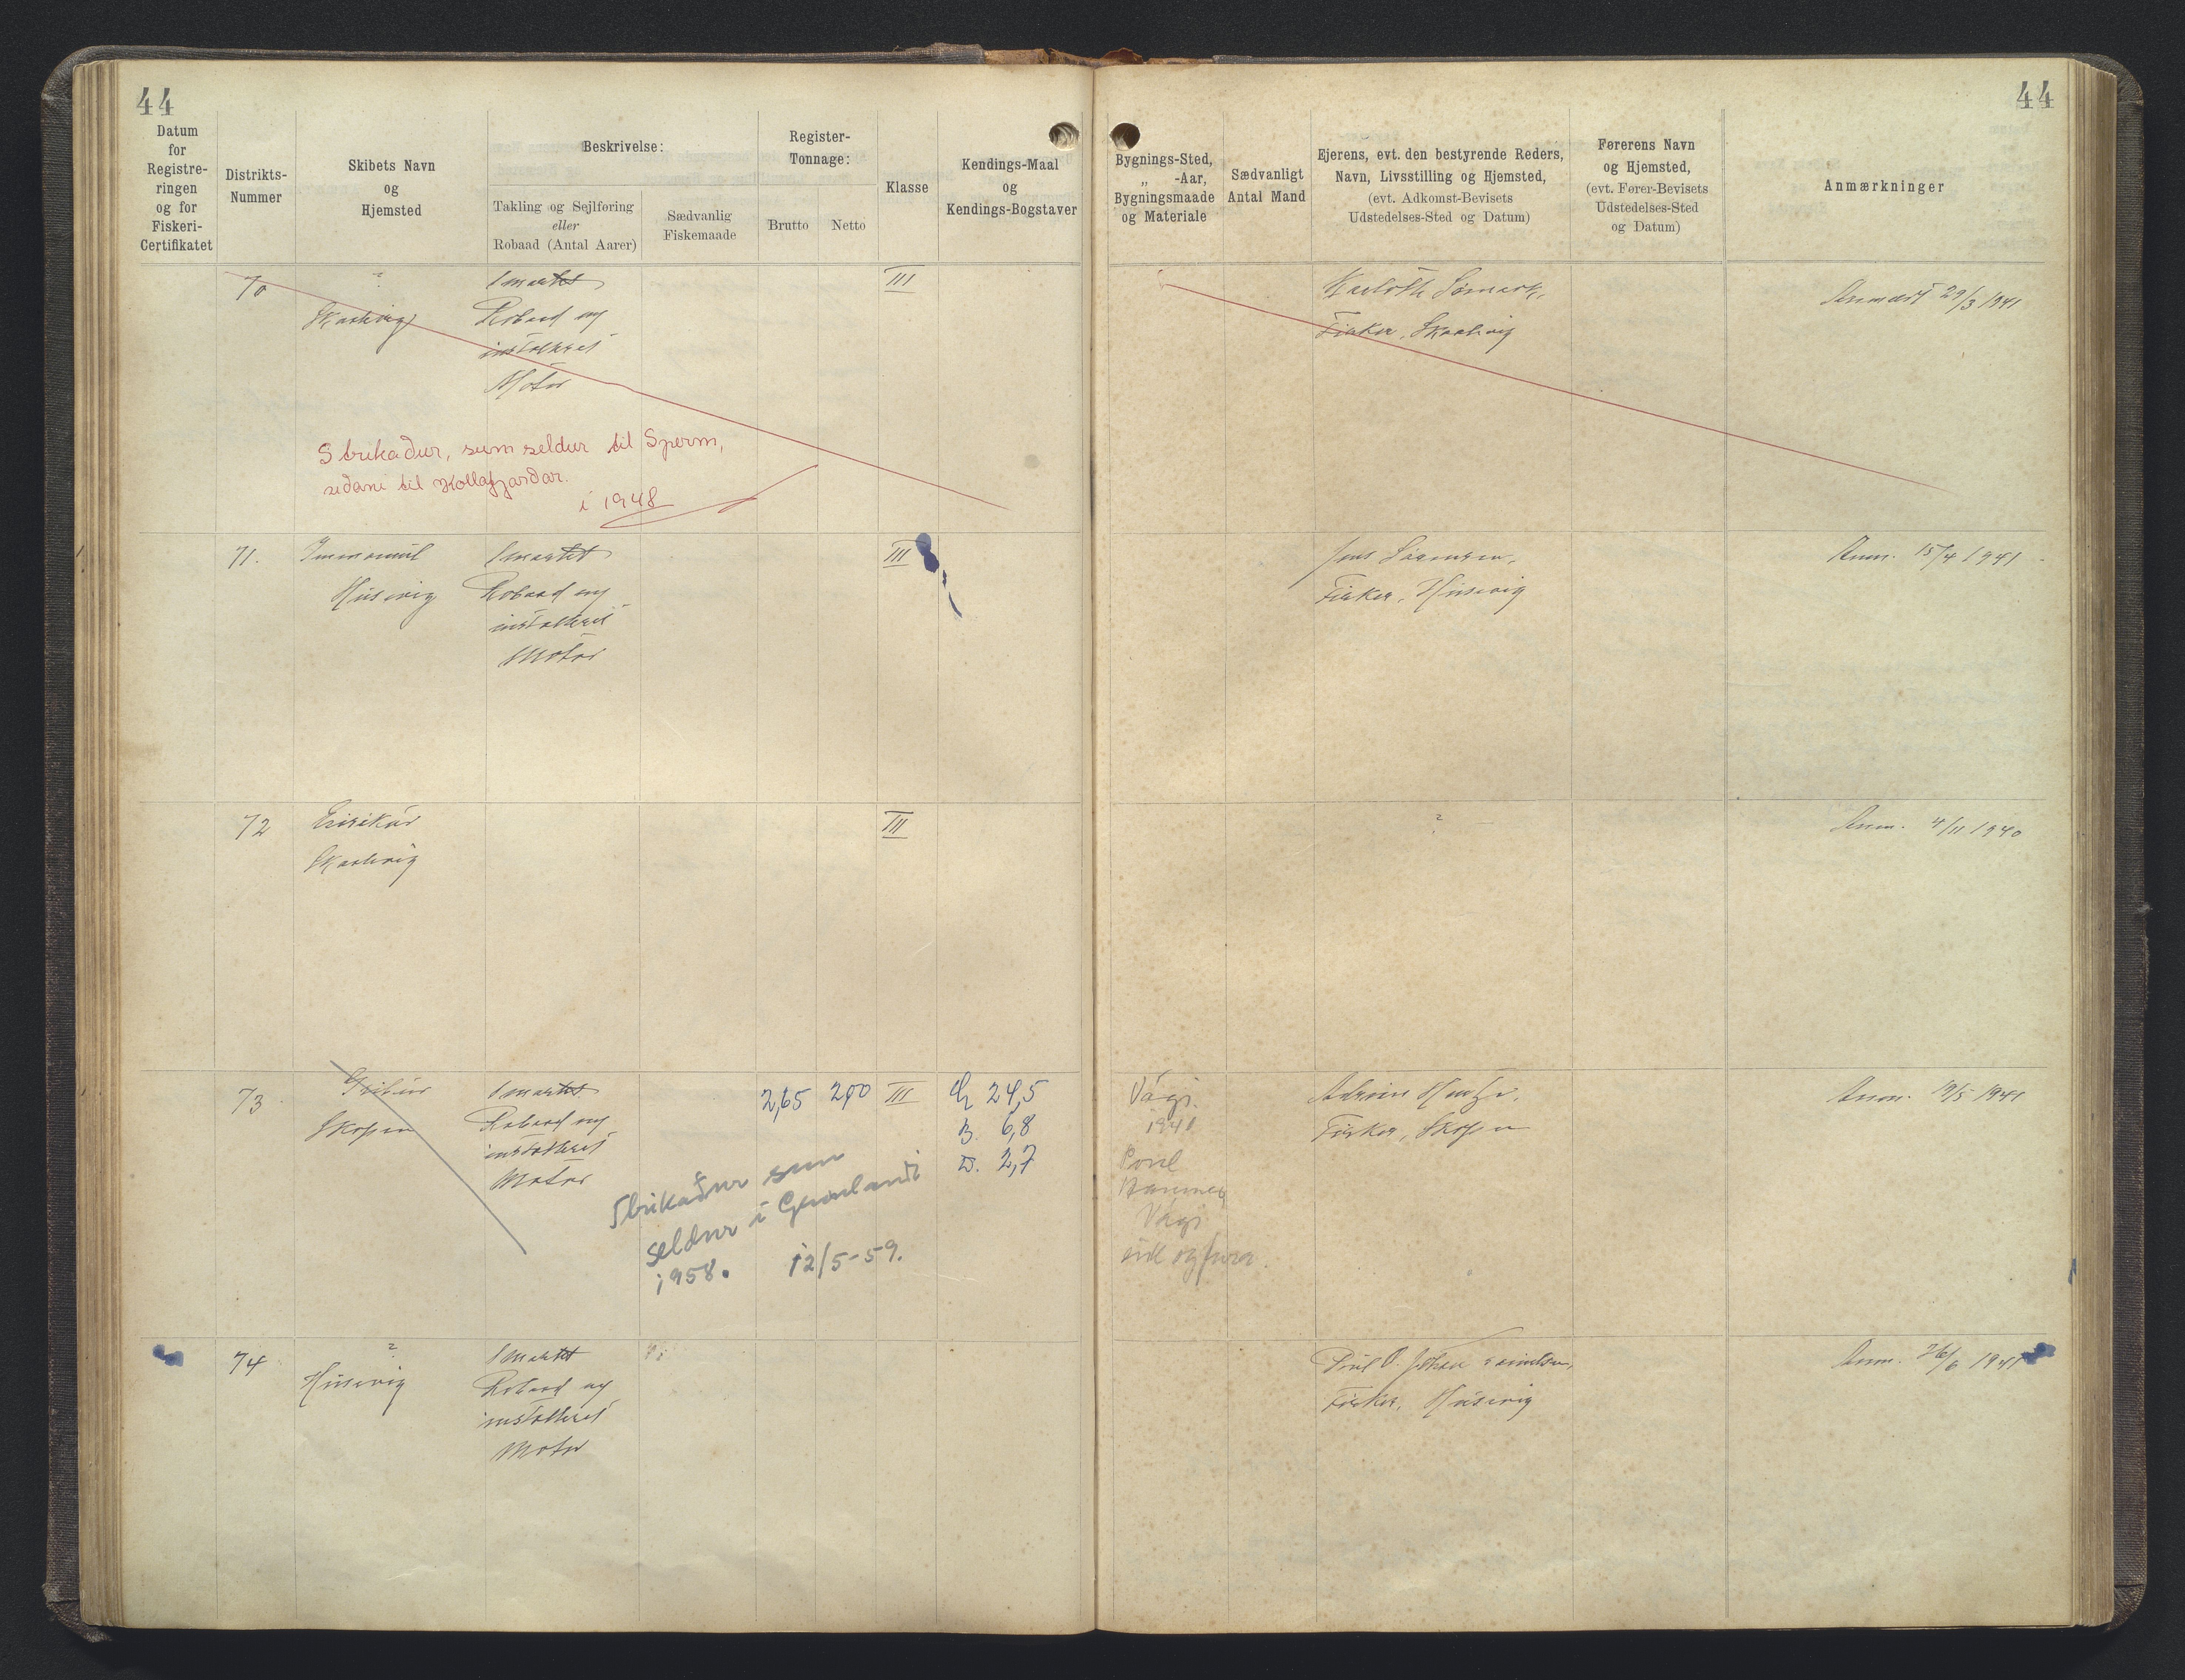 44
44
Datum
for
Registre-
ringen
og for
Fiskeri-
Certifikatet
Distrikts-
Nummer
Skibets Navn
og
Hjemsted
Beskrivelse:
Takling og Sejlføring
eller
Robaad (Antal Aarer)
Sædvanlig
Fiskemaade
Register-
Tonnage:
Brutto
Netto
Klasse
Kendings-Maal
og
Kendings-Bogstaver
Bygnings-Sted,
„ -Aar,
Bygningsmaade
og Materiale
Sædvanligt
Antal Mand
Ejerens, evt. den bestyrende Reders,
Navn, Livsstilling og Hjemsted,
(evt. Adkomst-Bevisets
Udstedelses-Sted og Datum)
Førerens Navn
og Hjemsted,
(evt. Fører-Bevisets
Udstedelses-Sted
og Datum)
Anmærkninger
70
?
Skaalevig
1 mastet
Robaad og
installeret
Motor
III
Fisker, Skaalevig
Anmeldt 29/3 1941
Strikaður, sum seldur til Sperm,
síðani til Kollafjarðar.
í 1948
71.
Immanuel
Húsevig
1 mastet
Robaad og
installeret
Motor
III
Jens Sørensen,
Fisker, Húsevig
Anm. 15/4 1941
72
Eirikur
Skaalevig
III
?
Anm. 4/11 1940
73
Skopen
1 mastet
Robaad og
installeret
Motor
2,65
2,00
III
L 24,5
B. 6,8
D. 2,7
Vági.
1940
Poul
Hammer
Vági
eik og fura
Fisker, Skopen
Anm. 19/5 1941
Strikaður sum
seldur í Grønlandi
1958. 12/5-59.
74
?
Húsevig
1 mastet
Robaad og
installeret
Motor
Poul O. Johannesen,
Fisker, Húsevig
Anm. 26/6 1941